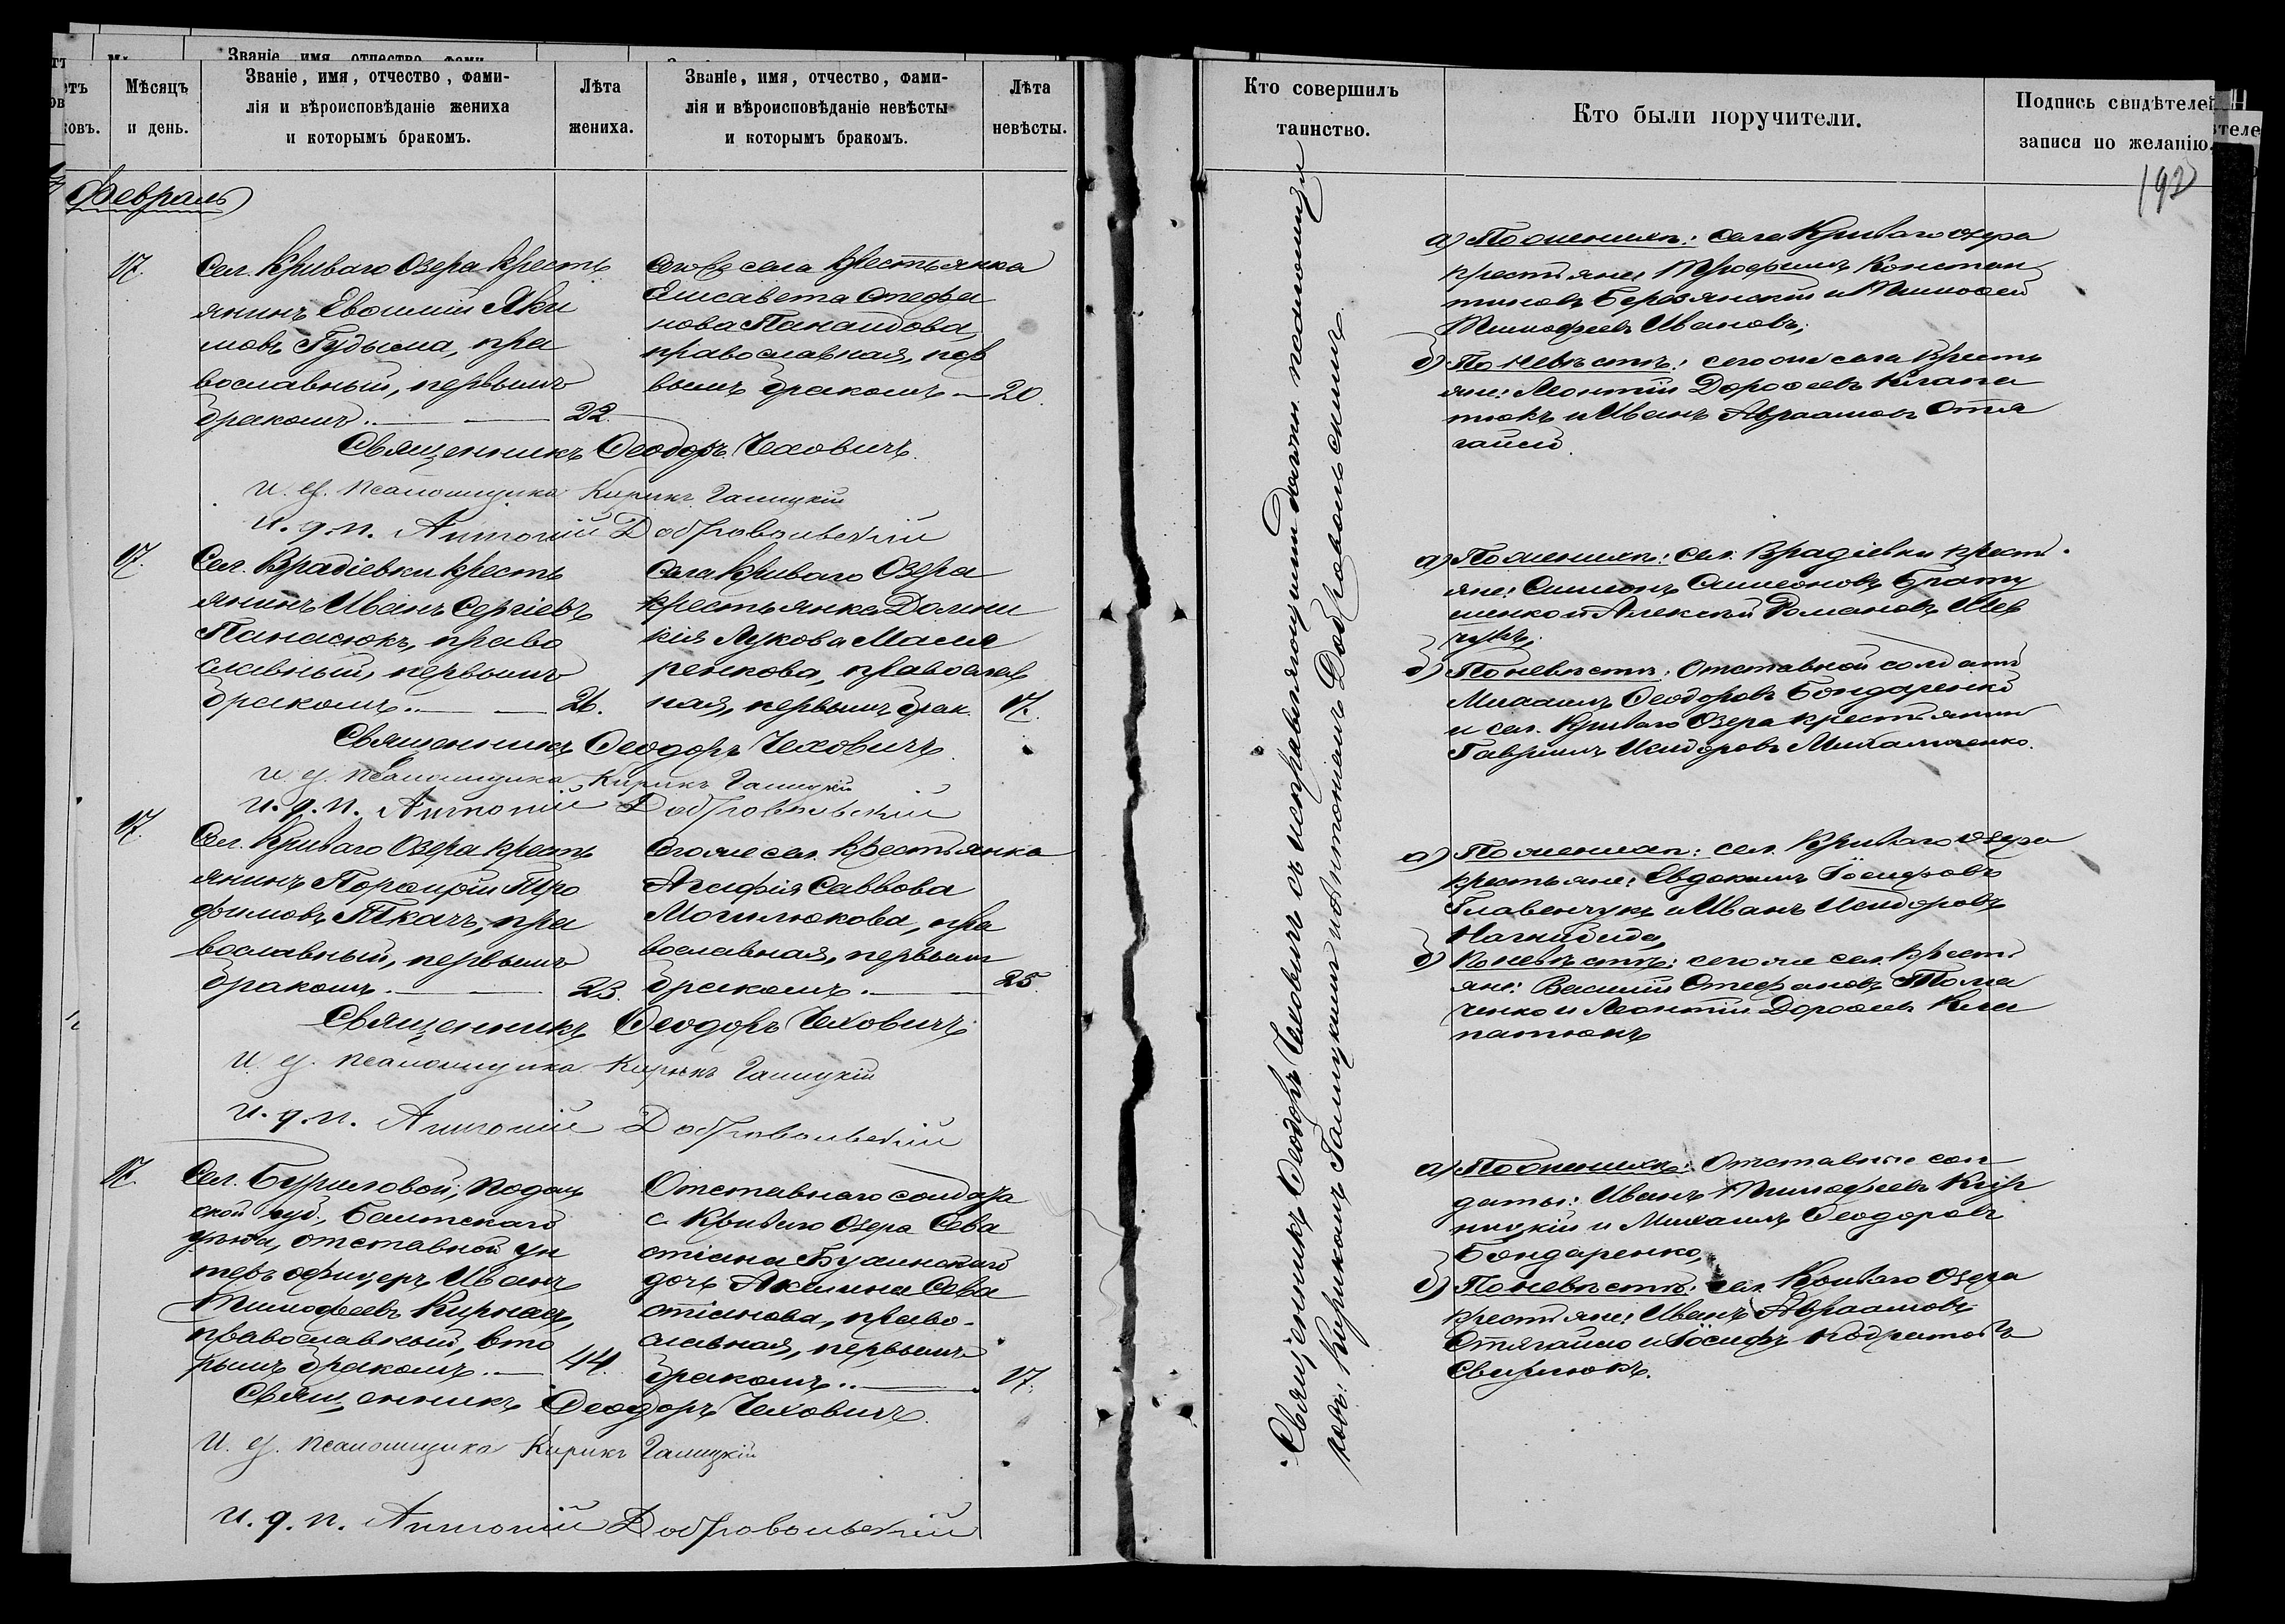 Мѣсяцъ
и день.
Званіе, имя, отчество, фами-
лія и вѣроисповѣданіе жениха
и которымъ бракомъ.
Лѣта
жениха.
Званіе, имя, отчество, фами-
лія и вѣроисповѣданіе невѣсты
и которымъ бракомъ.
Лѣта
невѣсты.
Февраль
17.
Сел. Криваго Озера кресть
янинъ Евѳимій Яки
мовъ Гудыма, пра
вославный, первымъ
бракомъ. — 22.
Того же села крестьянка
Елисавета Стефа
нова Панаидова,
православная, пер
вымъ бракомъ — 20.
Священникъ Ѳеодоръ Чеховичъ.
И. д. псаломщика Кирикъ Галицкій
И. д. п. Антоній Добровольскій
17.
Сел. Врадіевки кресть
янинъ Иванъ Сергіевъ
Панасюкъ, право
славный, первымъ
бракомъ. — 26.
Села Криваго Озера
крестьянка Домни
кія Лукова Маля
ренкова, православ
ная, первымъ брак. 17.
Священникъ Ѳеодоръ Чеховичъ.
И. д. псаломщика Кирикъ Галицкій
И. д. п. Антоній Добровольскій
17.
Сел. Криваго Озера кресть
янинъ Порфирій Тро
фимовъ Ткачъ, пра
вославный, первымъ
бракомъ. — 23.
Того же сел. крестьянка
Агафія Саввова
Могилюкова, пра
вославная, первымъ
бракомъ. — 25.
Священникъ Ѳеодоръ Чеховичъ
И. д. псаломщика Кирикъ Галицкій
И. д. п. Антоній Добровольскій
17.
Сел. Буриловой, Подоль
ской губ., Балтскаго
уѣзда, отставной ун
теръ офицеръ Иванъ
Тимофеевъ Кирнац,
православный, вто
рымъ бракомъ. — 44.
Отставнаго солдата
с. Криваго Озера Сева
стіана
дочь Акилина Сева
стіанова, право-
славная, первымъ
бракомъ. — 17.
Священникъ Ѳеодоръ Чеховичъ.
И. д. псаломщика Кирикъ Галицкій
И. д. п. Антоній Добровольскій
Кто совершилъ
таинство.
Кто были поручители.
Подпись свидѣтелей
записи по желанію.
192
Священникъ Ѳеодоръ Чеховичъ съ исправляющими должн. псаломщи
ковъ: Кирикомъ Галицкимъ и Антоніемъ Добровольскимъ.
а) По женихѣ: села Криваго Озера
крестьяне: Трофимъ Констан
тиновъ Березянскій и Тимофей
Тимофеевъ Ивановъ;
б) По невѣстѣ: того же села кресть
яне: Леонтій Дороѳеевъ Клапа
тюкъ и Иванъ Авраамовъ Отя
гайло.
а) По женихѣ: сел. Врадіевки кресть
яне: Симеонъ Симеоновъ Брату
шенко и Алексѣй Романовъ Шев
чукъ;
б) По невѣстѣ: Отставной солдатъ
Михаилъ Ѳеодоровъ Бондаренко
и сел. Криваго Озера крестьянинъ
Гавріилъ Исидоровъ Михальченко.
а) По женихѣ: сел. Криваго Озера
крестьяне: Евдокимъ Іосифовъ
Главенчукъ и Иванъ Исидоровъ
Нагнибида,
б) По невѣстѣ: того же сел. кресть
яне: Василій Стефановъ Толма
ченко и Леонтій Дороѳеевъ Кла
патюкъ
а) По женихѣ: Отставные сол
даты: Иванъ Тимофеевъ
и Михаилъ Ѳеодоровъ
Бондаренко,
б) По невѣстѣ: сел. Криваго Озера
крестьяне: Иванъ Авраамовъ
Отягайло и Іосифъ Кодратовъ
Свирнюкъ.